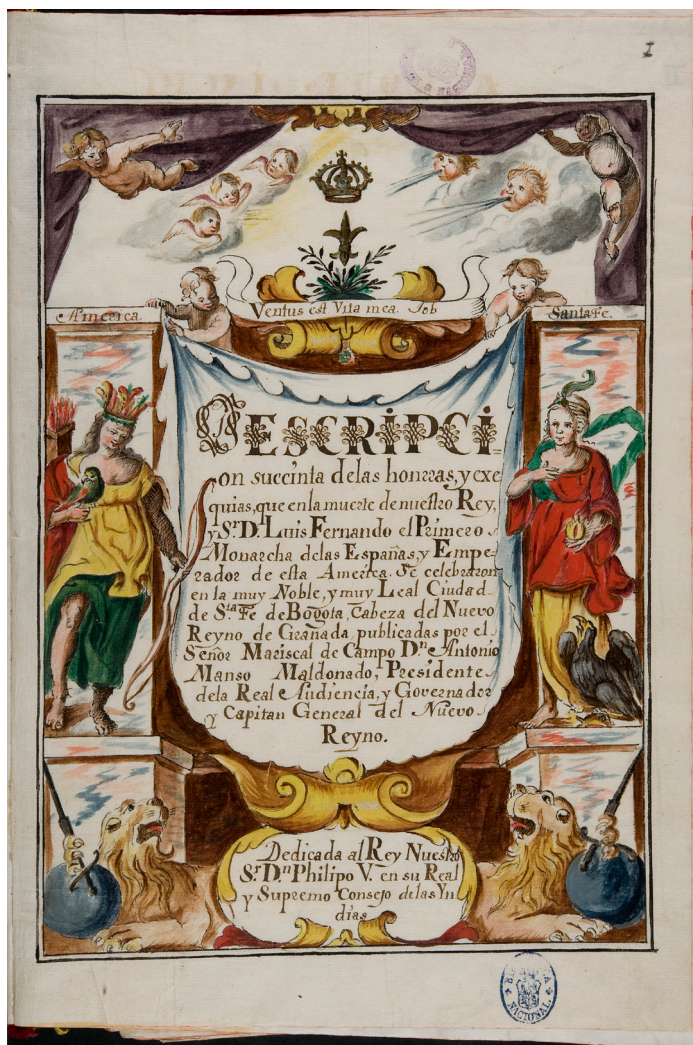 1
Ventus est Vita mea. Job
America.
SantaFe.
DESCRIPCI-
on succinta delas honrras, y exe
quias, que en la muerte de nuestro Rey,
y Sr. D. Luis Fernando el Primero
Monarcha delas Españas, y Empe-
rador de esta America. Se celebraron
en la muy Noble, y muy Leal Ciudad
de Sta Fe de Bogota, Cabeza del Nuevo
Reyno de Granada, publicadas por el
Señor Mariscal de Campo Dn Antonio
Manso Maldonado, Presidente
dela Real Audiencia, y Governador
y Capitan General del Nuevo
Reyno.
Dedicada al Rey Nuestro
Sr Dn Philipo V. en su Real
y Supremo Consejo delas Yn
dias
NACIONAL